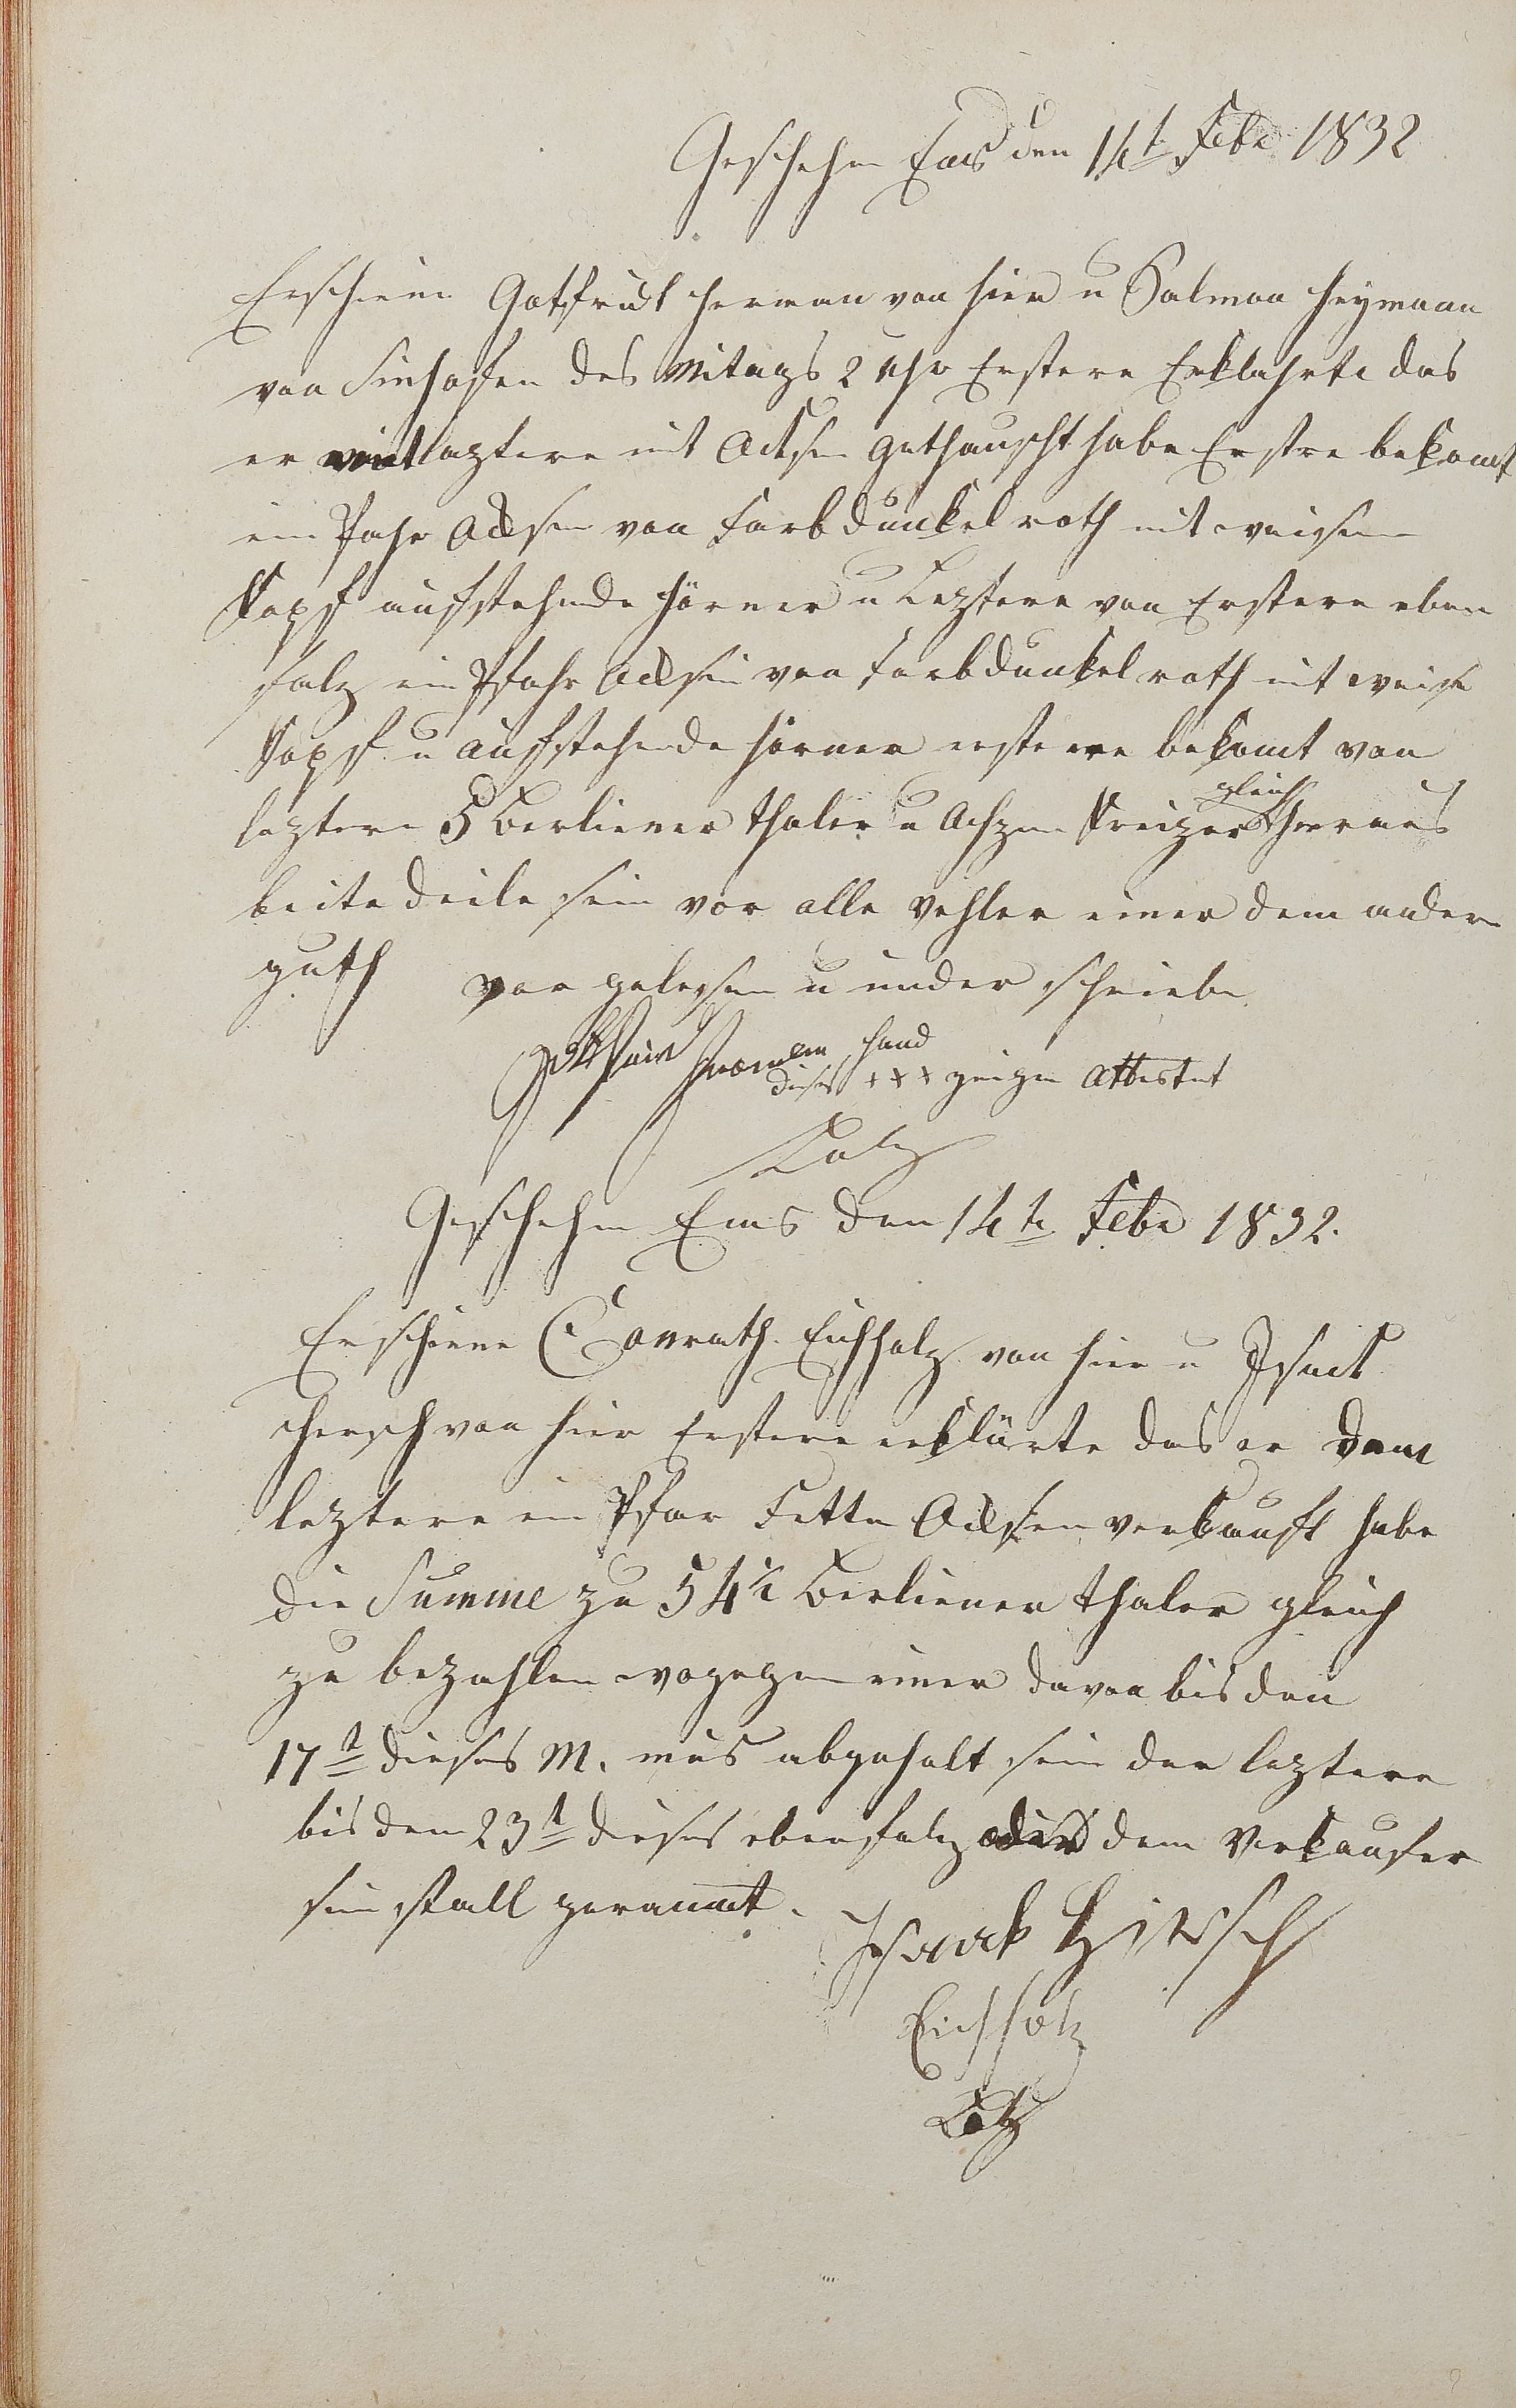 Geschehen Ems den 14t Febr 1832
Erschienen Gotfriet Herman von hier u Salmon Heymann
von Sinhofen des Mitags 2 Uhr Erstere Erklahrte das
er mit leztere mit Ocksen gethauscht habe Erstre bekomt
ein Pahr Ocksen von Farb dunkel roth mit weisen
Kopf aufstehende Hörner u Leztere von Erstere eben
falz ein Pfahr Ocksen von Farb dunkel roth mit weise
Kopf u aufstehende Hörner erstere bekomt von
leztern 5 Berliener Thaler u Achzen Kreizer gleich heraus
beite Deile sein vor alle Vehler einer dem andern
guth vor gelessen u under schrieben
Gottfrid Herman Hand
dieses +++ zeigen Attestet
Lotz
Geschehen Ems den 14te Febr 1832.
Erschiene Conrath Eichholz von hier u Isack
Hersch von hier Erstere erklärte das er dem
leztere ein Pfar Fette Ocksen verkauft habe
die Summe zu 54½ Berliener Thaler gleich
zu bezahlen wogegen einer davon bis den
17t dieses M. mus abgeholt sein der leztere
bis dem 23t dieses ebenfalz oder dem Verkaufer
sein Stall geraumt.
Isaack Hirsch
Eichholz
Lotz